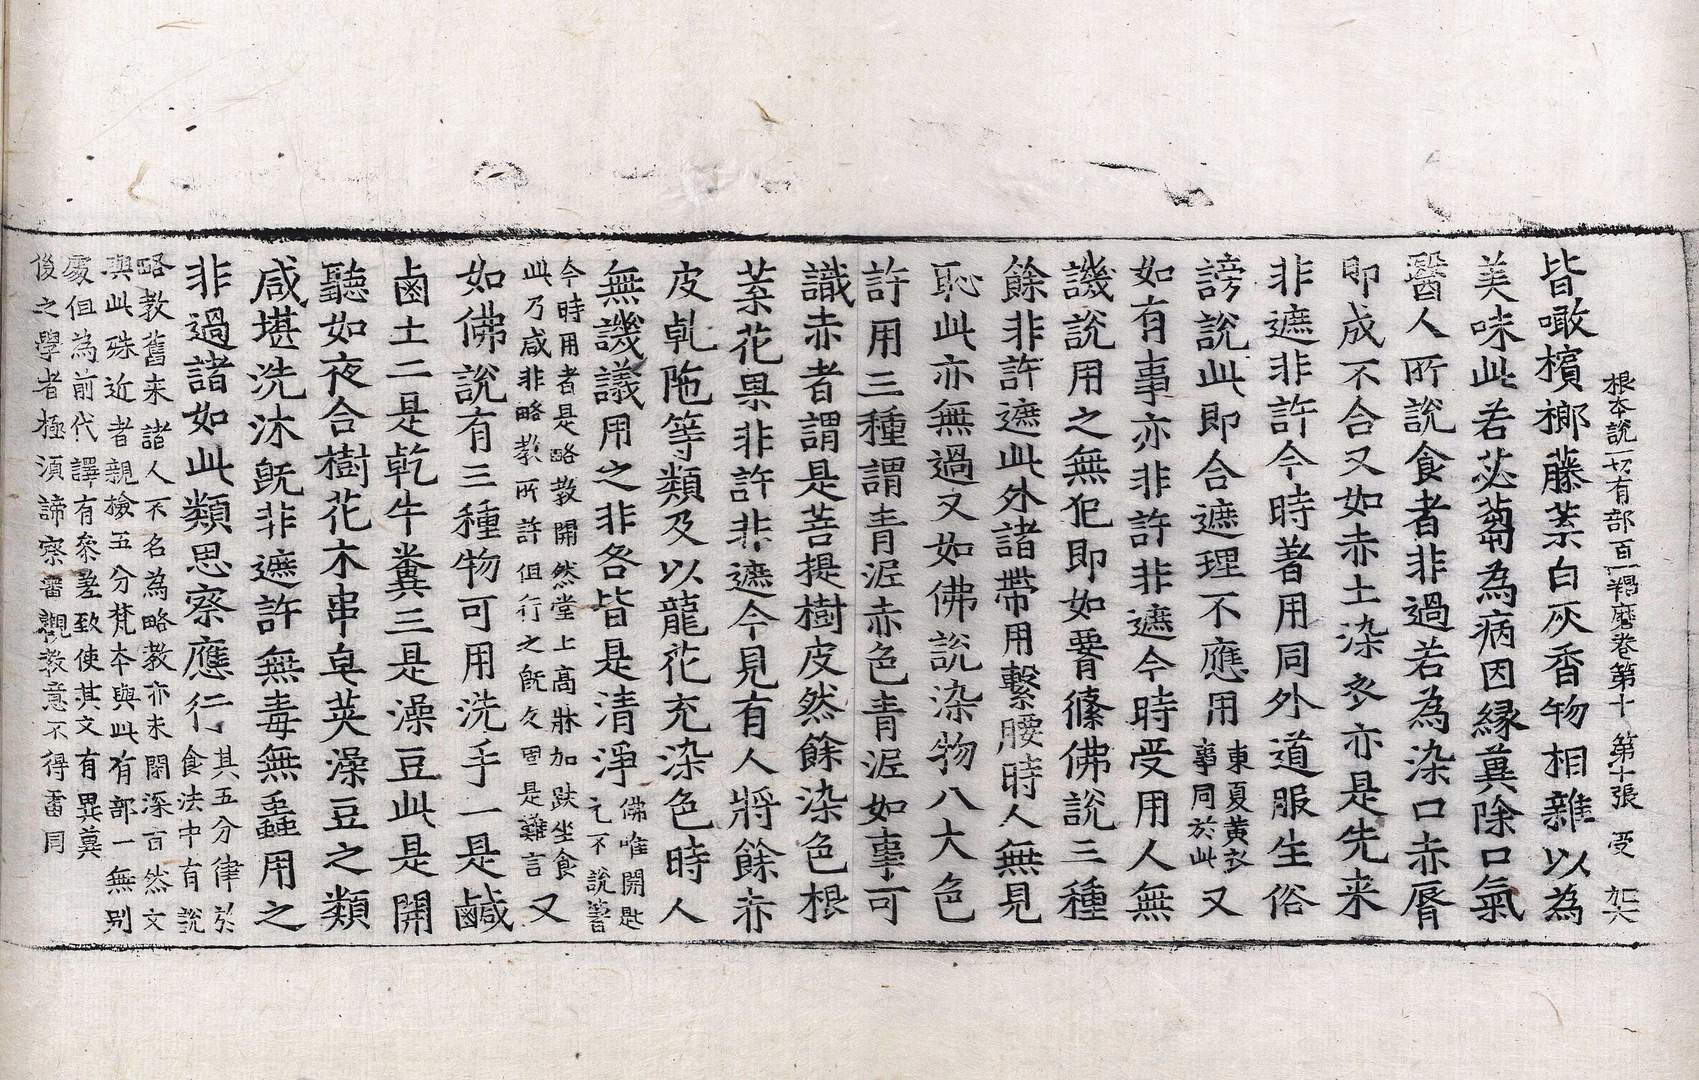 根本說一切有部百一羯磨卷第十 第十張 受
皆噉檳榔藤葉白灰香物相雜以為
美味此若苾蒭為病因緣兾除口氣
醫人所說食者非過若為染口赤脣
即成不合又如赤土染衣亦是先来
非遮非許今時著用同外道服生俗
謗說此即合遮理不應用東夏黃衣事同於此又
如有事亦非許非遮今時受用人無
譏說用之無犯即如要𦝫絛佛說三種
餘非許遮此外諸帶用繫腰時人無見
恥此亦無過又如佛說染物八大色
許用三種謂青泥赤色青泥如事可
識赤者謂是菩提樹皮然餘染色根
葉花果非許非遮今見有人將餘赤
皮乹陁等類及以蘢花充染色時人
無譏議用之非咎皆是清淨佛唯開匙乞不說箸
今時用者是略教開然堂上高牀加趺坐食
此乃咸非略教所許但行之旣久固是難言又
如佛說有三種物可用洗手一是鹹
鹵土二是乾牛糞三是澡豆此是開
聽如夜合樹花木串皂莢澡豆之類
咸堪洗沐旣非遮許無毒無蟲用之
非過諸如此類思察應行其五分律於食法中有說
略教舊来諸人不名為略教亦未閑深旨然文
與此殊近者親檢五分梵本與此有部一無別
處但為前代譯有叅差致使其文有異兾
後之學者極須諦察審觀教意不得雷同